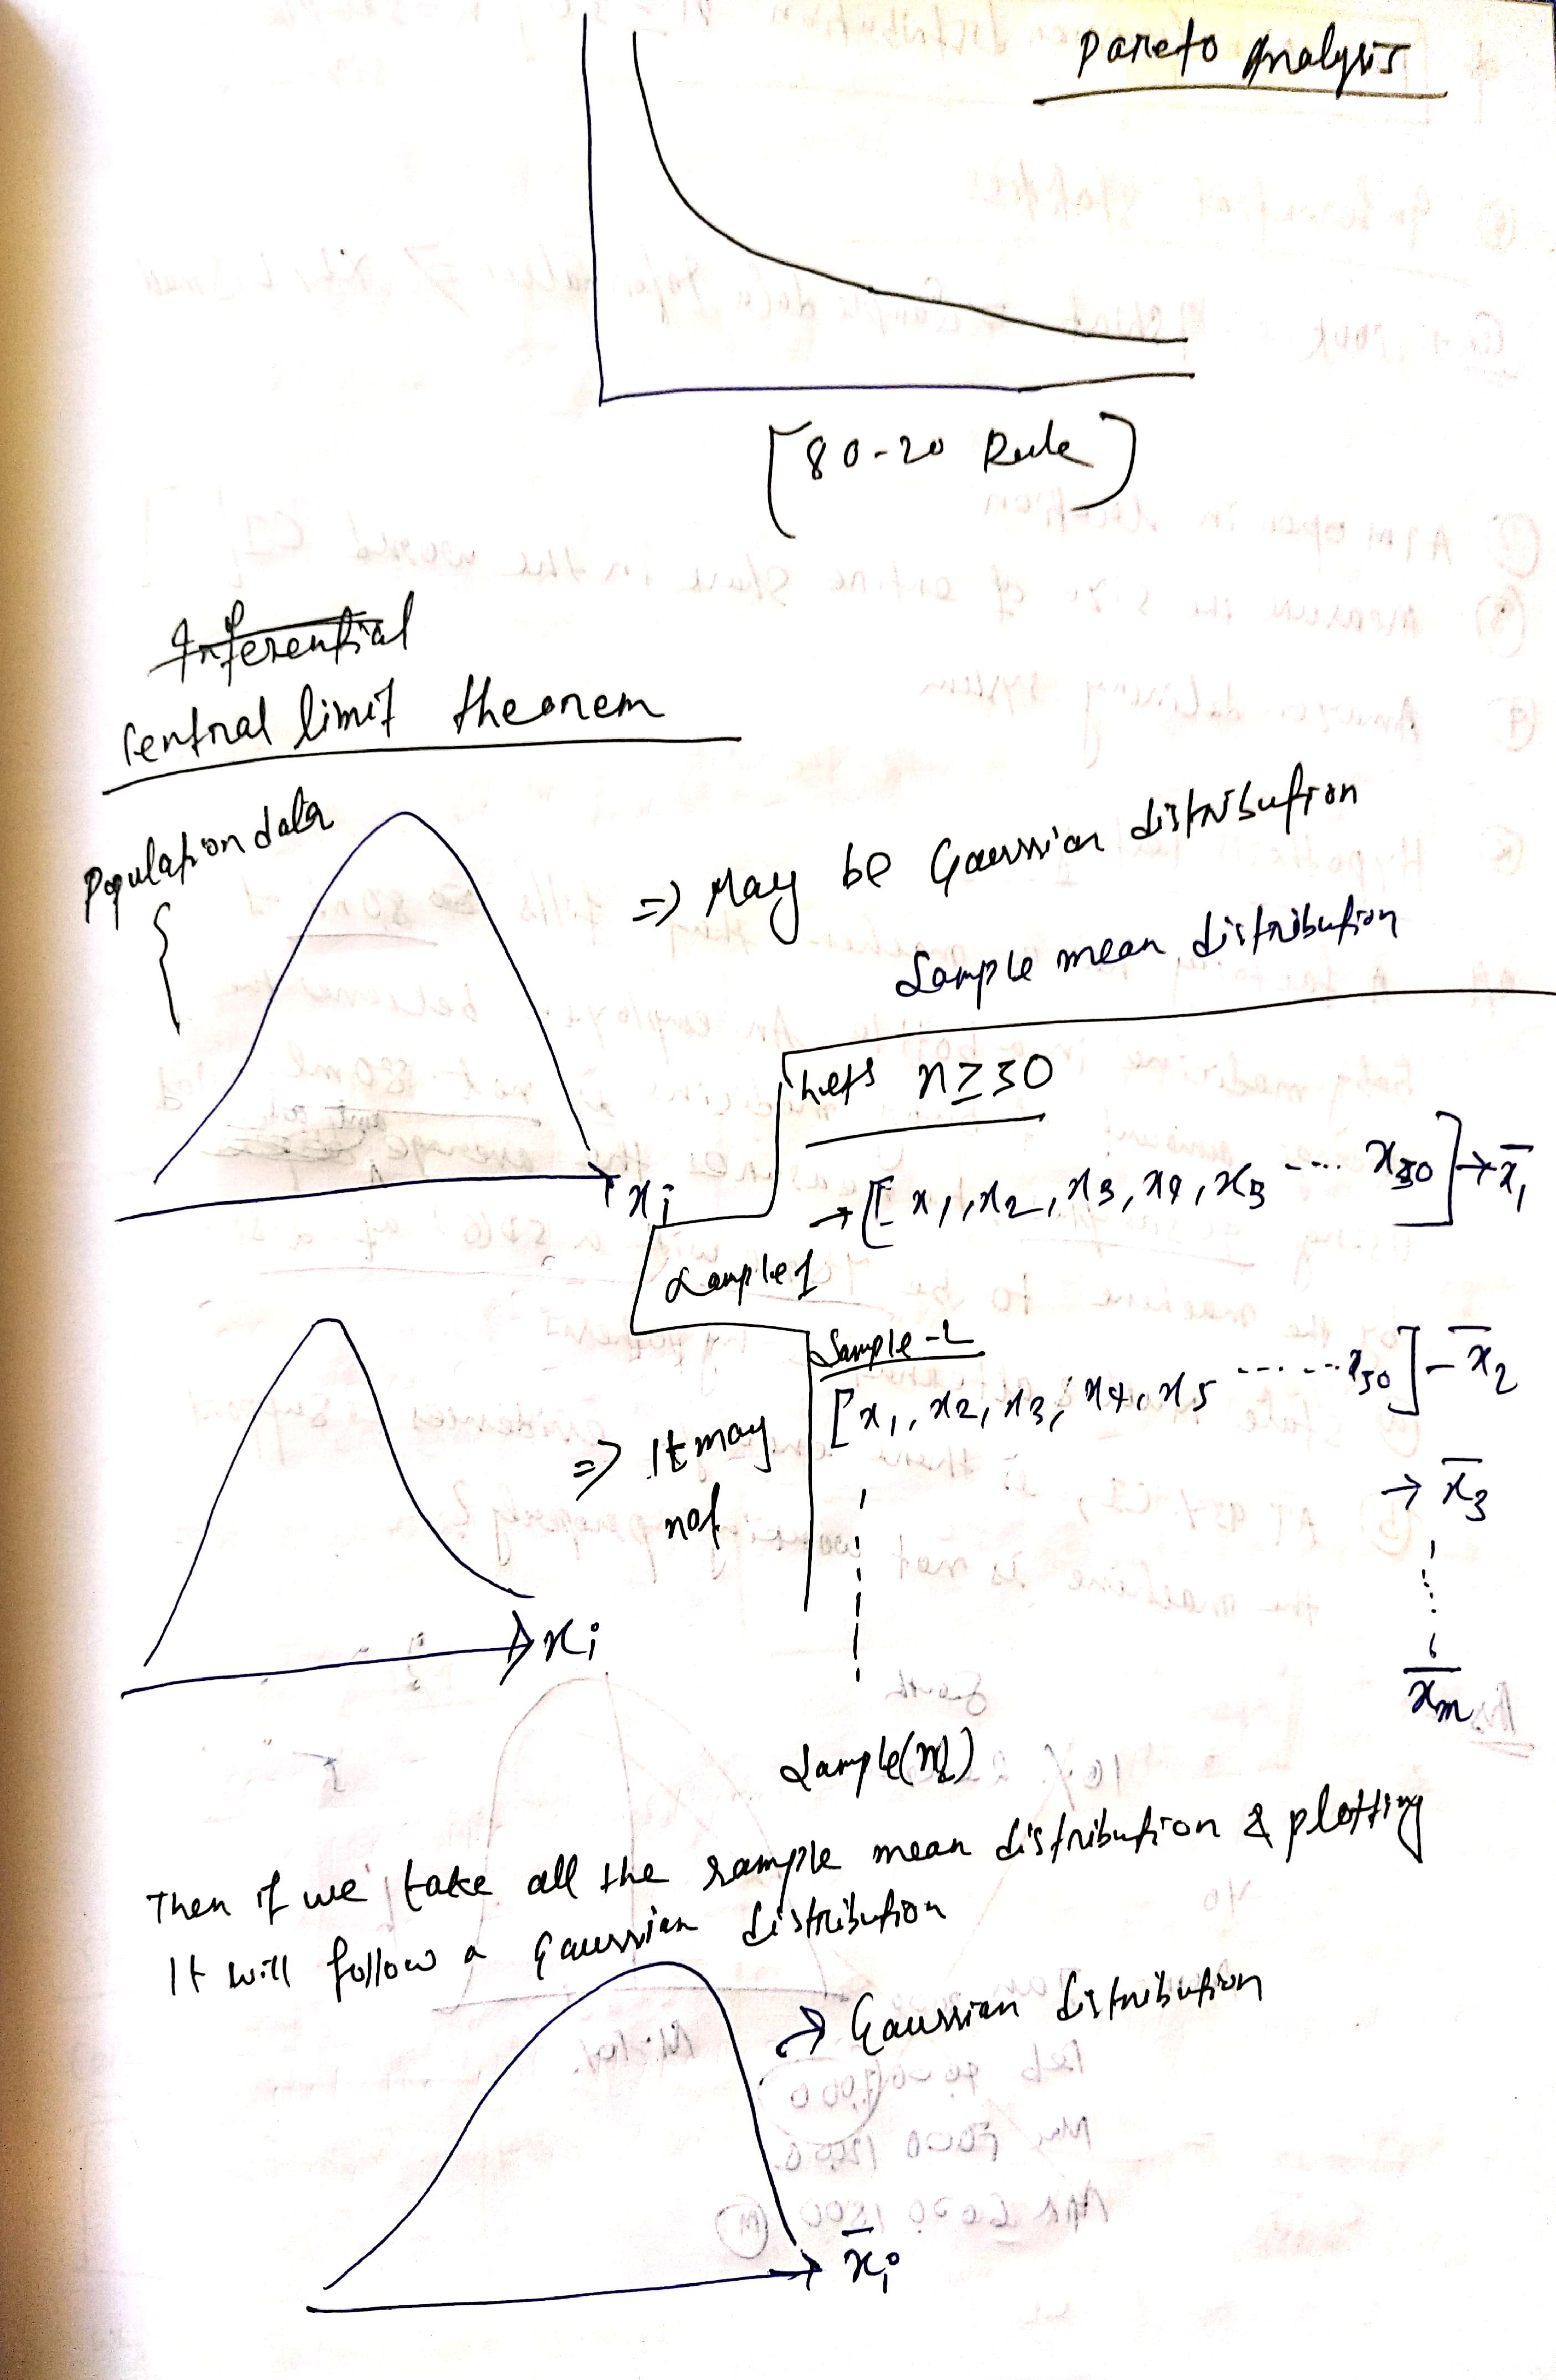 Pareto Analysis
[80-20 Rule]
Inferential
Central limit theorem
Population data
=> May be Gaussian distribution
Sample mean distribution
n ≥ 30
→ [x1, x2, x3, x4, x5 ---- x30] → x̄1
xi
Sample 1
Sample-2
[x1, x2, x3, x4, x5 ------ x30] - x̄2
=> It may
not
→ x̄3
xi
x̄m
Sample(m)
Then if we take all the sample mean distribution & plotting
It will follow a Gaussian distribution
→ Gaussian distribution
x̄i